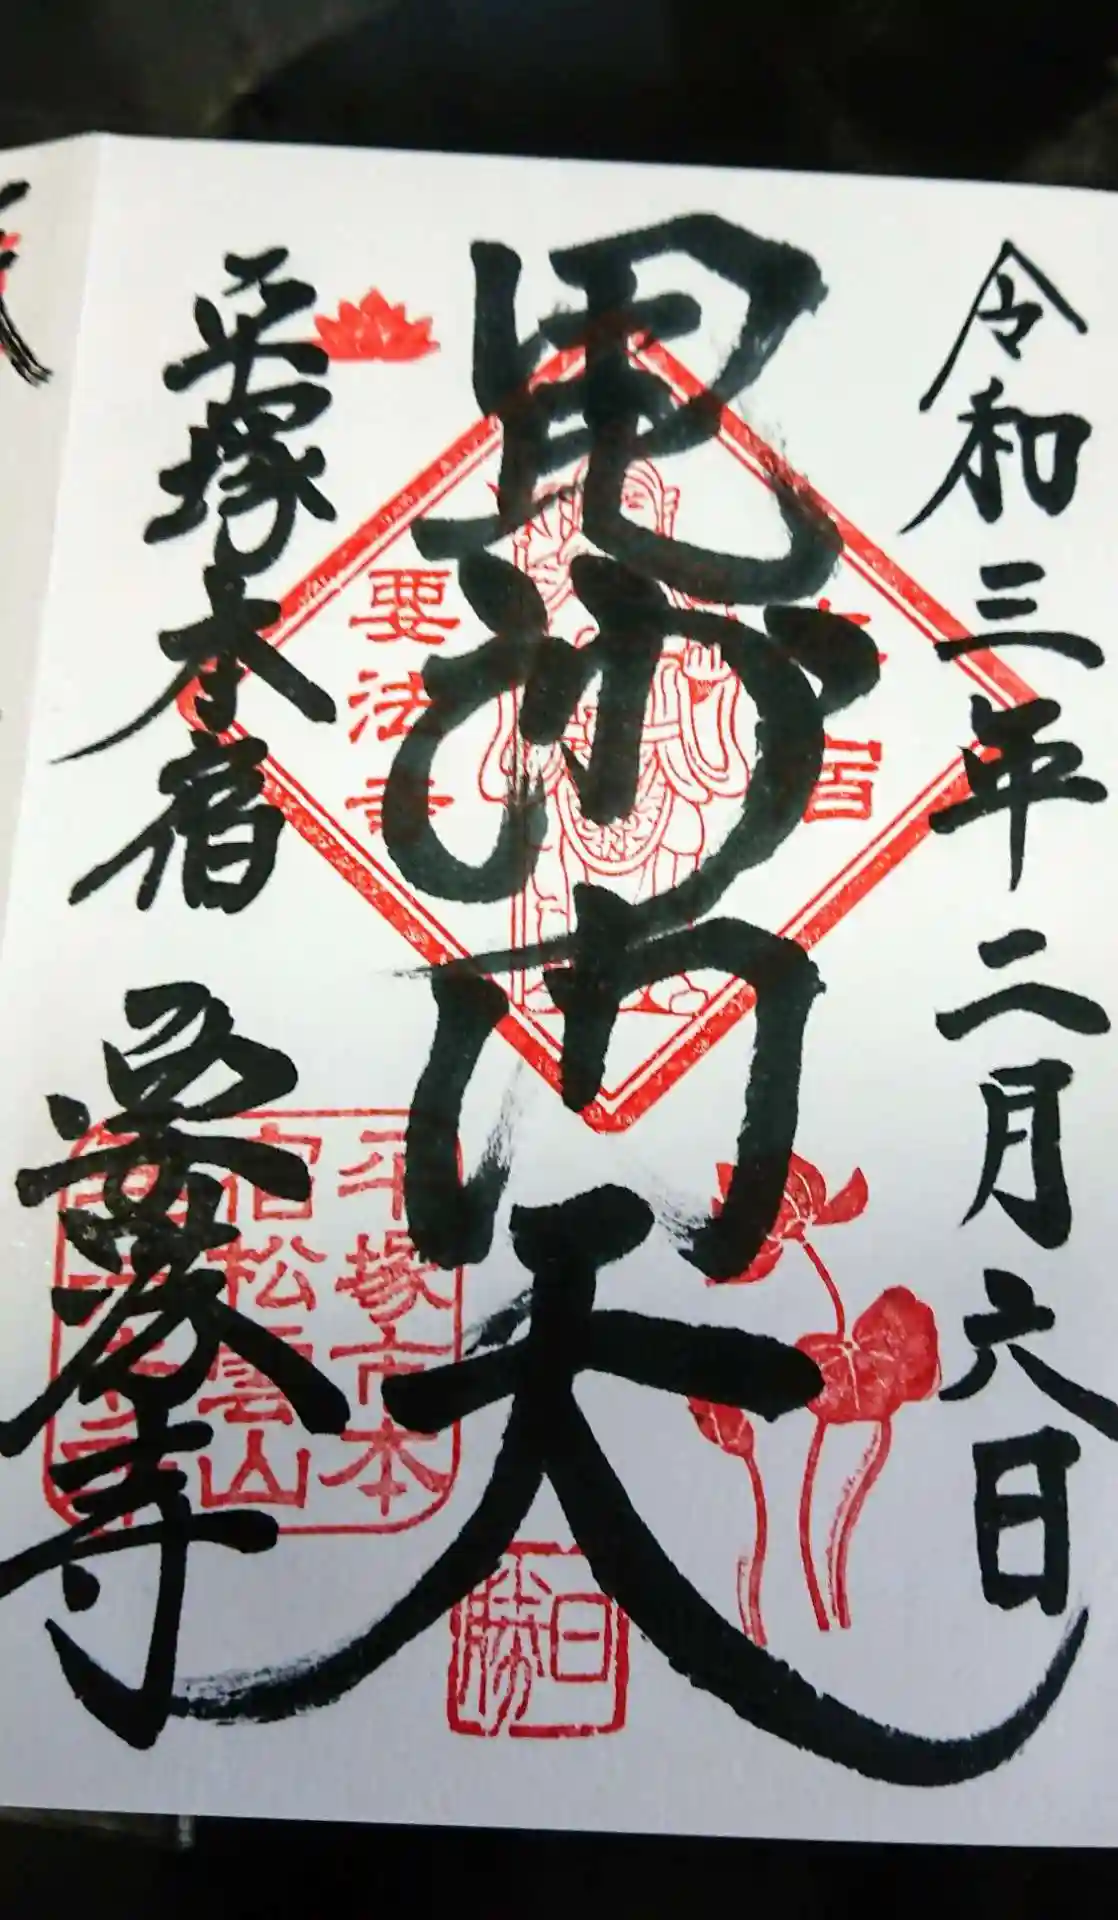 令和三年二月六日
毘沙門天
平塚本宿 要法寺
要法寺
平塚市本
宿松雲山
日勝